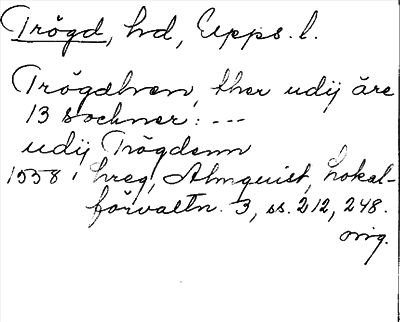 Trögd, hd, Upps. l.
Trögdhren, ther udij äre
13 sochner: ---
udij Trögdenn
1558 hreg, Almquist, Lokal-
förvaltn. 3, ss. 212, 248.
orig.